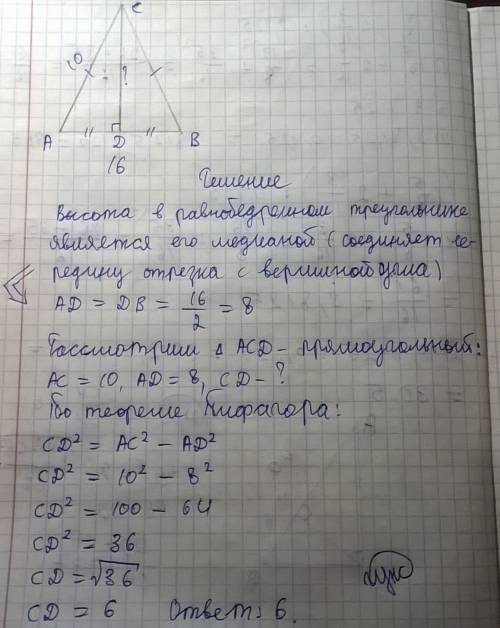 C
10
?
A
D
B
16
Решение
Высота в равнобедренном треугольнике
является его медианой (соединяет се-
редину отрезка с вершиной угла)
AD = DB = 16/2 = 8
Рассмотрим Δ ACD – прямоугольный:
AC = 10, AD = 8, CD – ?
По теореме Пифагора:
CD² = AC² – AD²
CD² = 10² – 8²
CD² = 100 – 64
CD² = 36
CD = √36
CD = 6 Ответ: 6.